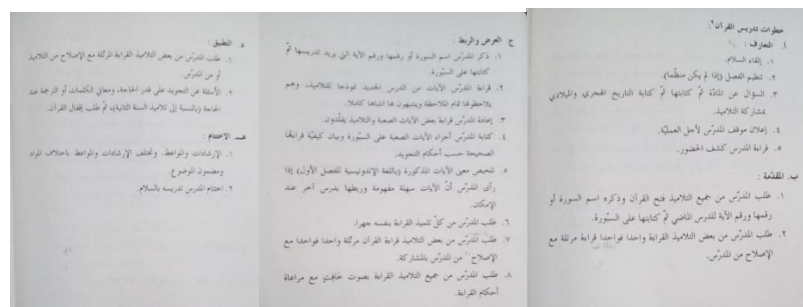 خطوات تدريس القرآن :
أ. التعارف :
١. إلقاء السلام.
٢. تنظيم الفصل (إذا لم يكن منظما).
٣. السؤال عن المادّة ثمّ كتابتها ثمّ كتابة التاريخ الهجري والميلادي
بمشاركة التلاميذ.
٤. إعلان موقف المدرّس لأجل العمليّة.
٥. قراءة المدرس كشف الحضور.
ب. المقدّمة :
١. طلب المدرّس من جميع التلاميذ فتح القرآن وذكره اسم السورة أو
رقمها ورقم الآية للدرس الماضي ثمّ كتابتها على السبّورة.
٢. طلب المدرّس من بعض التلاميذ القراءة واحدا فواحدا قراءة مرتلة مع
الإصلاح من المدرّس.
ج. العرض والربط :
١. ذكر المدرّس اسم السورة أو رقمها ورقم الآية التي يريد تدريسها ثمّ
كتابتها على السبّورة.
٢. قراءة المدرّس الآيات من الدرس الجديد نموذجا للتلاميذ، وهم
يلاحظونها تمام الملاحظة وينتبهون لها انتباها كاملا.
٣. إعادة المدرّس قراءة بعض الآيات الصعبة والتلاميذ يقلّدون.
٤. كتابة المدرّس أجزاء الآيات الصعبة على السبّورة وبيان كيفيّة قراءتها
الصحيحة حسب أحكام التجويد.
٥. تلخيص معنى الآيات المذكورة (باللغة الإندونيسية للفصل الأول) إذا
رأى المدرّس أنّ الآيات سهلة مفهومة وربطها بدرس آخر عند
الإمكان.
٦. طلب المدرّس من كلّ تلميذ القراءة بنفسه جهرا.
٧. طلب المدرّس من بعض التلاميذ قراءة القرآن مرتّلة واحدا فواحدا مع
الإصلاح من المدرّس بالمشاركة.
٨. طلب المدرّس من جميع التلاميذ القراءة بصوت خافت مع مراعاة
أحكام القراءة.
د. التطبيق :
١. طلب المدرّس من بعض التلاميذ القراءة المرتّلة مع الإصلاح من التلاميذ
أو من المدرّس.
٢. الأسئلة عن التجويد على قدر الحاجة، ومعاني الكلمات أو الترجمة عند
الحاجة (بالنسبة إلى تلاميذ السنة الثانية)، ثمّ طلب إقفال القرآن.
هـ. الاختتام :
١. الإرشادات والمواعظ. وتختلف الإرشادات والمواعظ باختلاف المواد
ومضمون الموضوع.
٢. اختتام المدرس تدريسه بالسلام.